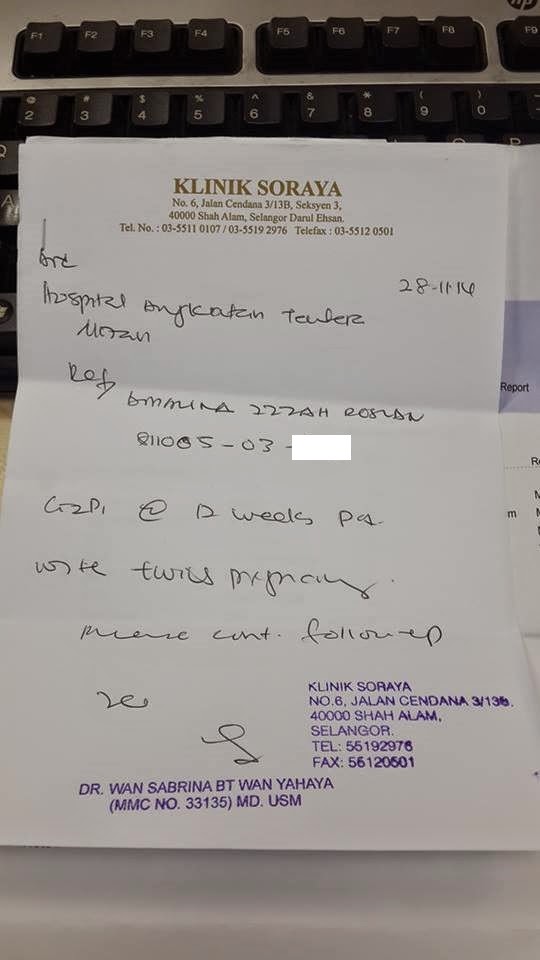 F1 F2 F3 F4 F5 F6 F7 F8 F9
@ # $ % ^ & * ( )
2 3 4 5 6 7 8 9 0
Q P
A
KLINIK SORAYA
No. 6, Jalan Cendana 3/13B, Seksyen 3,
40000 Shah Alam, Selangor Darul Ehsan.
Tel. No. : 03-5511 0107 / 03-5519 2976 Telefax : 03-5512 0501
28-11-14
Hospital Angkatan Tentera
Ref
AMALINA IZZAH ROSLAN
811005-03-
G2P1 @ 12 weeks
with twins pregnancy.
please cont. follow-up
KLINIK SORAYA
NO.6, JALAN CENDANA 3/13B.
40000 SHAH ALAM,
SELANGOR.
TEL: 55192976
FAX: 55120501
DR. WAN SABRINA BT WAN YAHAYA
(MMC NO. 33135) MD. USM
Report